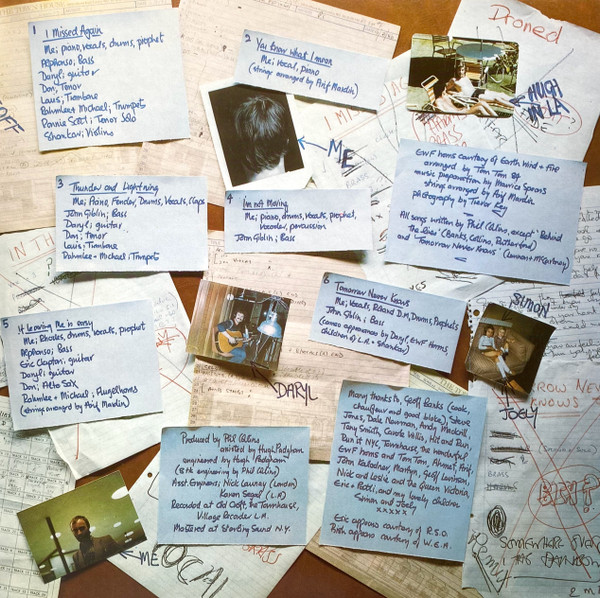 1 I Missed Again
Me; piano, vocals, drums, prophet
Alphonso; Bass
Daryl; guitar
Don; Tenor
Louis; Trombone
Rahmlee + Michael; Trumpets
Ronnie Scott; Tenor Solo
Shankar; Violins
2 You Know what I mean
Me; vocal, piano
(strings arranged by Arif Mardin)
Droned
HUGH
IN LA
I MISSED A
ME
3 Thunder and Lightning
Me; Piano, Fender, Drums, Vocals, Claps
John Giblin; Bass
Daryl; guitar
Don; tenor
Louis; Trombone
Rahmlee + Michael; Trumpets
4 Im not Moving
Me; piano, drums, vocals, prophet,
vocoder, percussion
John Giblin; Bass
EWF horns courtesy of Earth Wind + Fire
arranged by Tom Tom 84
music preparation by Maurice Spears
strings arranged by Arif Mardin
photography by Trevor Key
All songs written by Phil Collins, except 'Behind
the Lines' (Banks, Collins, Rutherford)
and 'Tomorrow Never Knows' (Lennon + McCartney)
IN TH
5 If Leaving Me is easy
Me; Rhodes, drums, vocals, prophet
Alphonso; Bass
Eric Clapton; guitar
Daryl; guitar
Don; Alto Sax
Rahmlee + Michael; Flugelhorns
(strings arranged by Arif Mardin)
DARYL
6 Tomorrow Never Knows
Me; Vocals, Roland, D.M, Drums, Prophets
John Giblin; Bass
(cameo appearances by Daryl, EWF Horns,
children of L.A. + Shankar)
SIMON
JOELY
ROW NEV
KNOWS
Produced by Phil Collins
assisted by Hugh Padgham
engineered by Hugh Padgham
(8 tk engineering by Phil Collins)
Asst. Engineers; Nick Launay (London)
Karen Segal (L.A)
Recorded at Old Croft, The Townhouse,
Village Recorder L.A.
Mastered at Sterling Sound N.Y.
Many thanks to, Geoff Banks (cook,
chauffeur and good bloke), Steve
Jones, Dale Newman, Andy Mackrill,
Tony Smith, Carole Willis, Hit and Run,
Run it NYC, Townhouse, the wonderful
EWF horns and Tom Tom, Ahmet, Arif,
John Kalodner, Martyn, Geoff,
Nick and Leslie and the Queen Victoria,
Eric + Patti, and my lovely children
Simon and Joely
xxxxx
Eric appears courtesy of R.S.O.
Phil appears courtesy of W.E.A.
ME
OCAL
Remix
SOMEWHERE